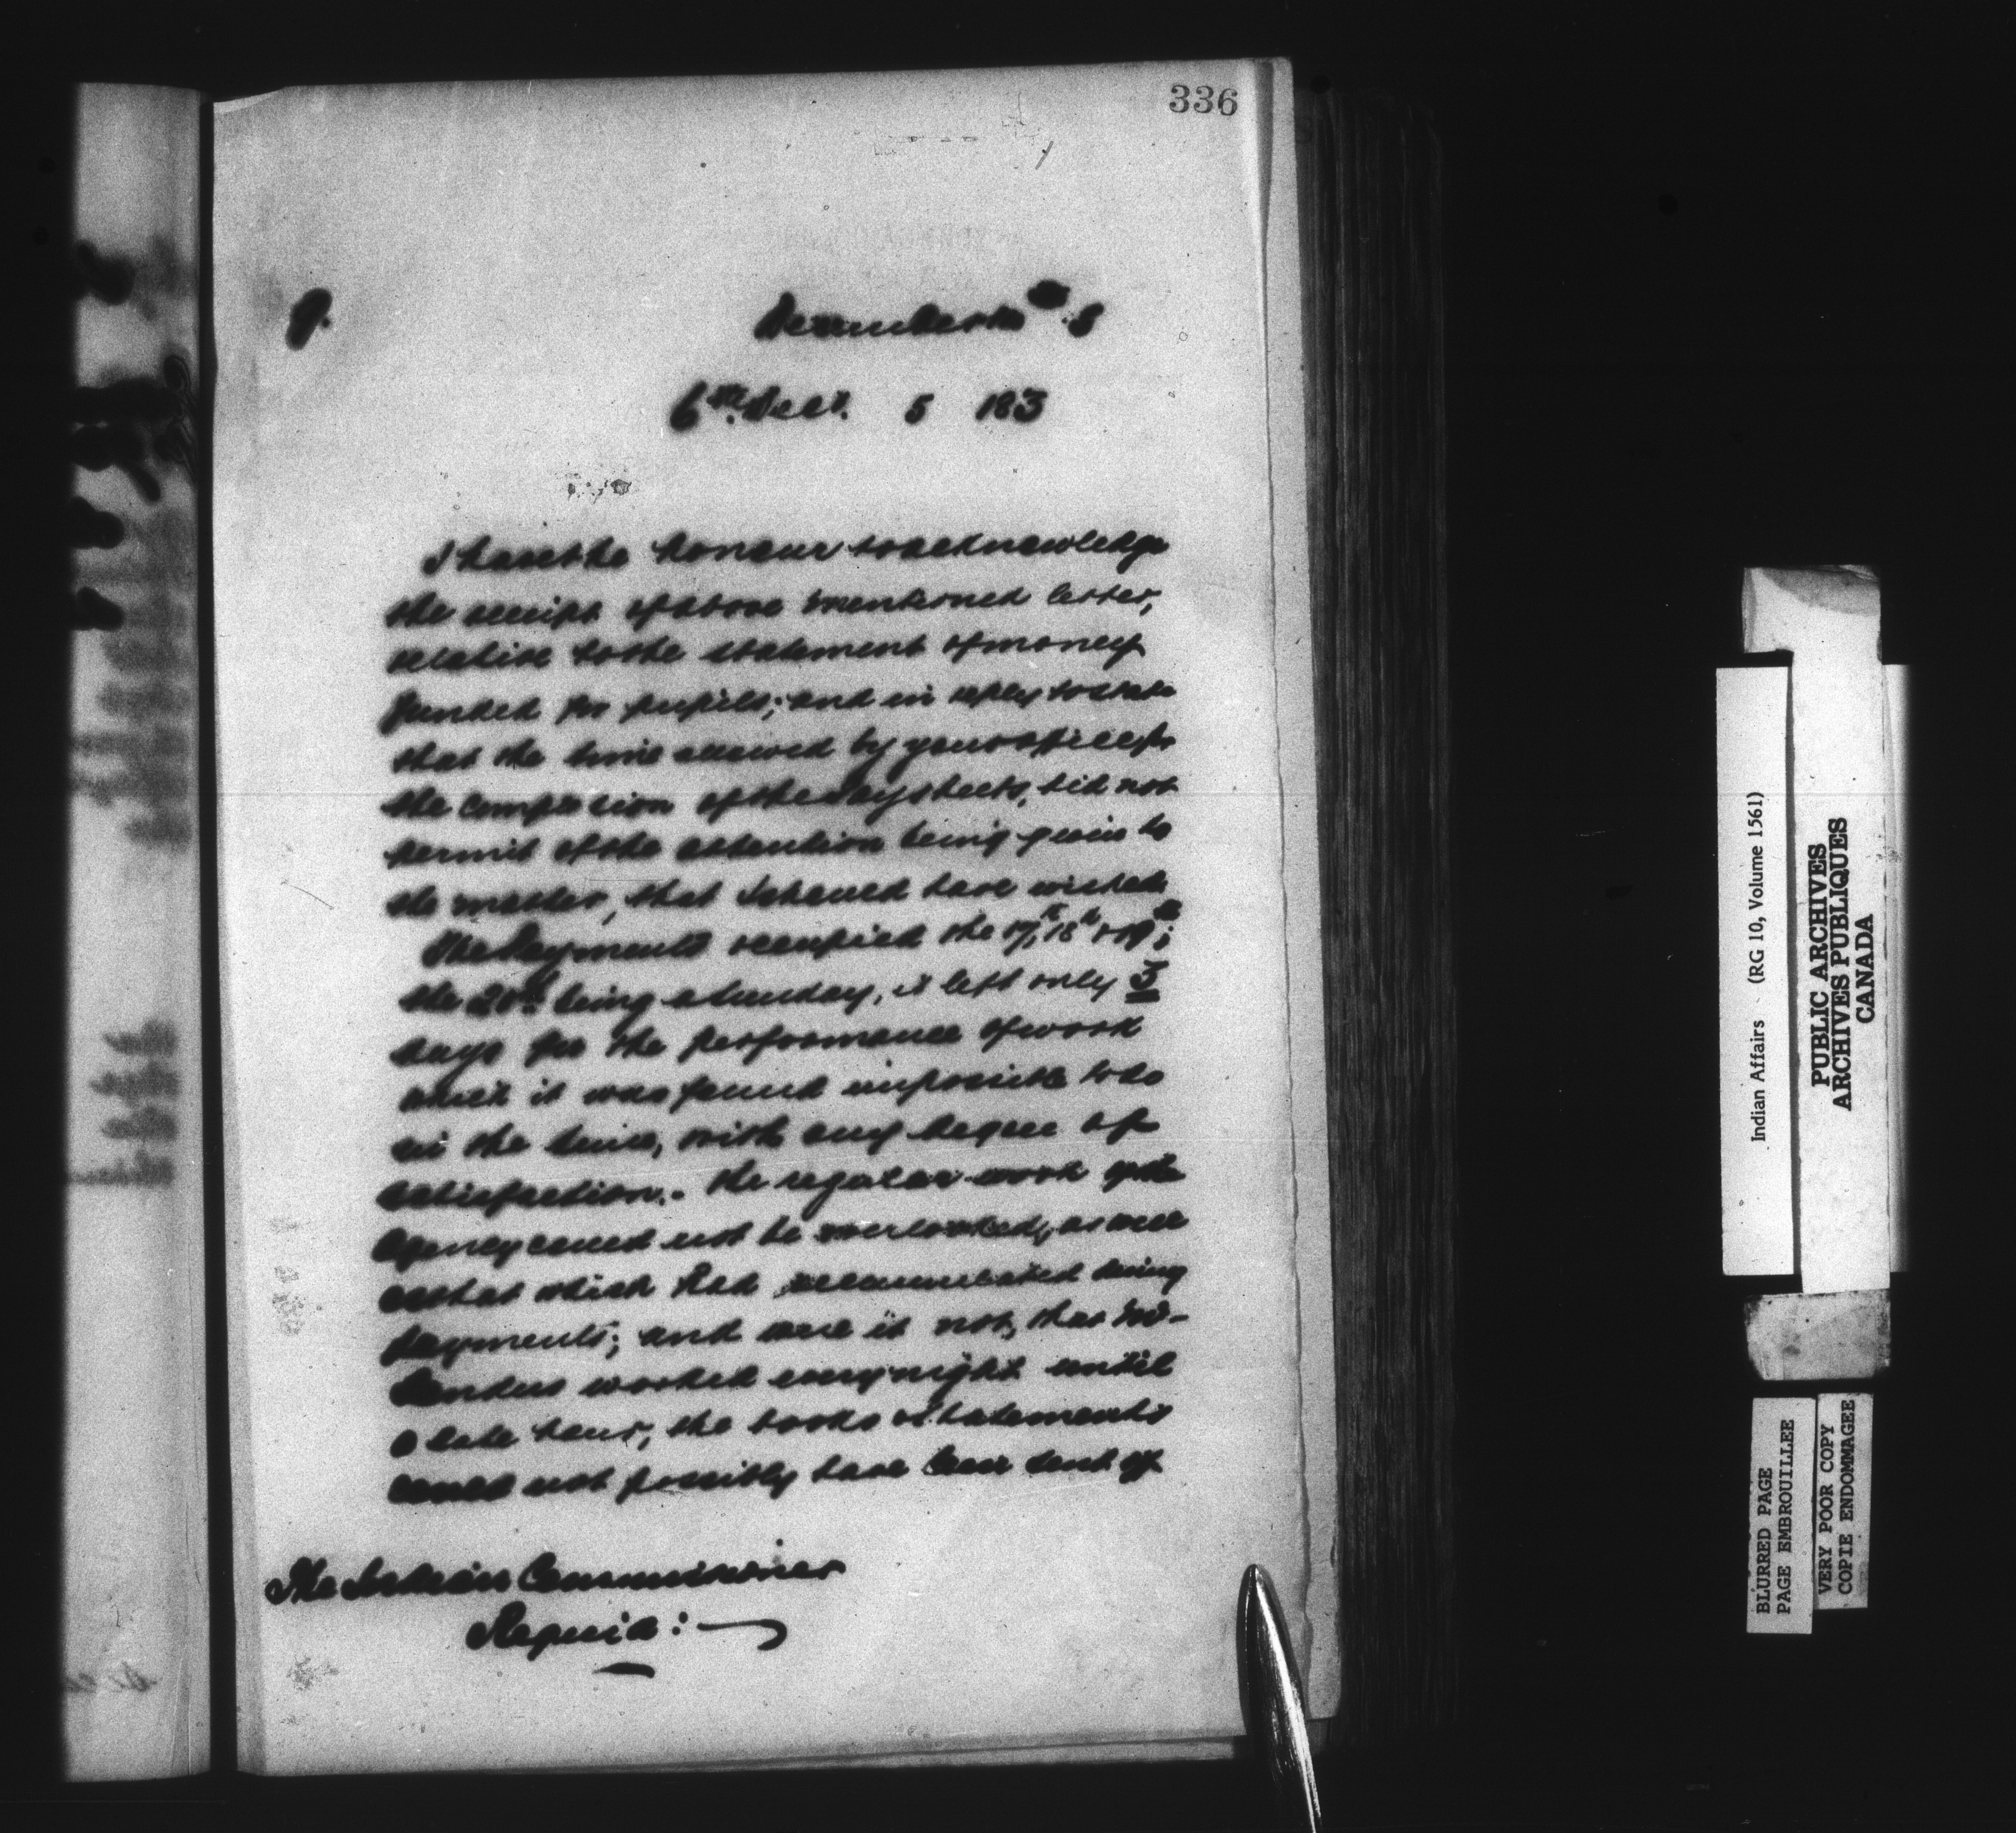 336
9.
December 8
6th Decr. 5 183
I have the honour to acknowledge
the receipt of above mentioned letter,
relative to the statement of money
funded for pupils; and in reply to state
that the time allowed by your office for
the completion of the Paysheets, did not
permit of the attention being given to
the matter, that I should have wished.
The Payments occupied the 17th, 18th & 19th;
the 20th being a Sunday, it left only 3
days for the performance of work
which it was found impossible to do
in the time, with any degree of
satisfaction. The regular work of the
Agency could not be overlooked, as well
as that which had accumulated during
payments; and were it not, that
worked every night until
a late hour, the books & statements
could not possibly have been sent off
The Indian Commissioner
Regina:
Indian Affairs (RG 10, Volume 1561)
PUBLIC ARCHIVES
ARCHIVES PUBLIQUES
CANADA
BLURRED PAGE
PAGE EMBROUILLEE
VERY POOR COPY
COPIE ENDOMMAGEE